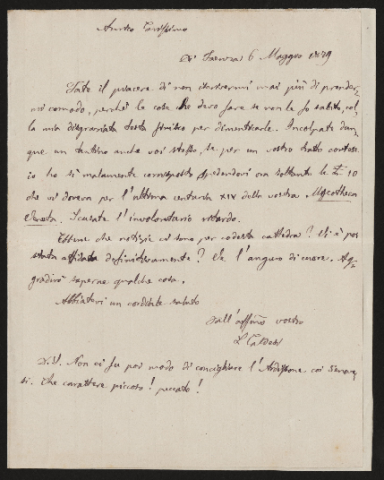 Amico Carissimo
Di Faenza 6 Maggio 1879
Fate il piacere di non iscrivermi mai più di prender
mi comodo, perchè la cosa che devo fare se non la fo subito, col
la mia disgraziata testa finisco per dimenticarle. Incolpate dun
que un tantino anche voi stesso, se per un vostro tratto cortese
io ho sì malamente corrisposto spedendovi ora soltanto le £ 10
che vi dovevo per l'ultima centuria XIX della vostra Mycotheca
Scusate l'involontario ritardo.
Ebbene che notizie ci sono per codesta cattedra? Vi è poi
stata affidata definitivamente? Ve l'auguro di cuore. Ag-
gradirò saperne qualche cosa.
Abbiatevi un cordiale saluto
dall'affmo vostro
L Caldesi
D.S. Non ci fu poi modo di conciliare l'Ardissone coi
che carattere piccoso! peccato!